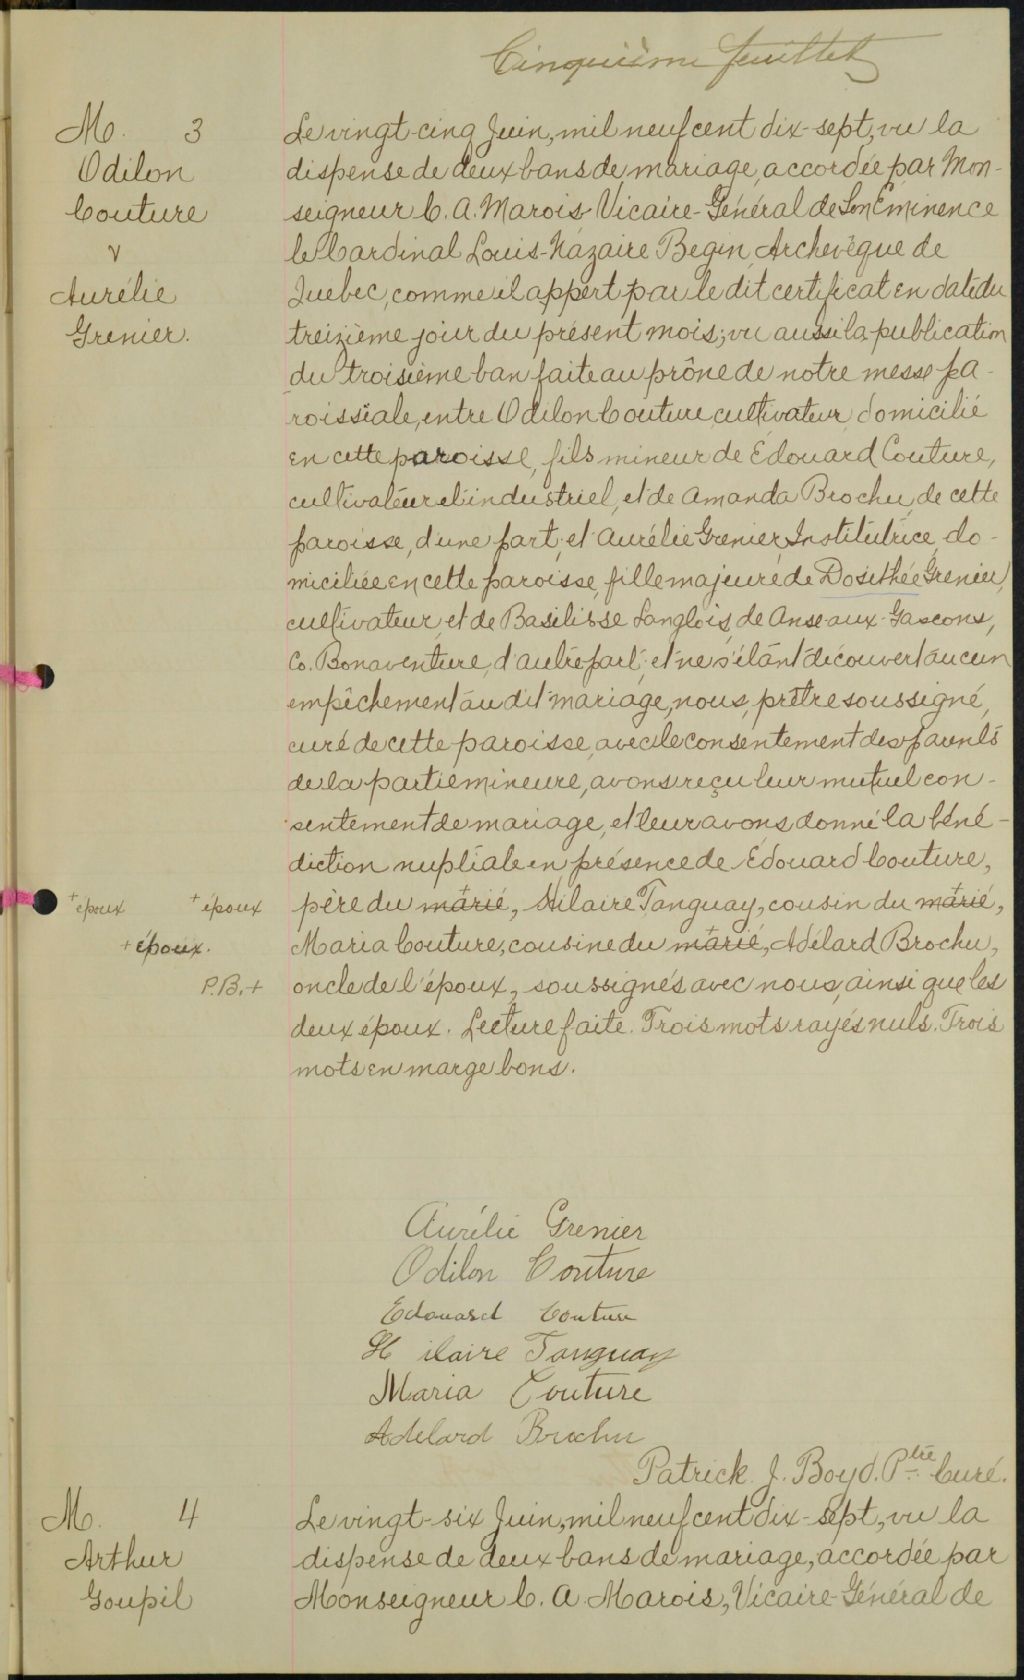 Cinquième feuillet
M. 3
Odilon
Couture
v
Aurélie
Grenier.
Le vingt-cinq Juin, mil neuf cent dix-sept, vu la
dispense de deux bans de mariage, accordée par Mon-
seigneur C. A. Marois Vicaire-Général de Son Eminence
le Cardinal Louis-Nazaire Begin, Archevêque de
Quebec, comme il appert par le dit certificat en date du
treizième jour du présent mois; vu aussi la publication
du troisième ban faite au prône de notre messe pa-
roissiale, entre Odilon Couture, cultivateur, domicilié
en cette paroisse, fils mineur de Édouard Couture,
cultivateur et industriel, et de Amanda Brochu, de cette
paroisse, d'une part; et Aurélie Grenier, Institutrice, do-
miciliée en cette paroisse, fille majeure de Dosithée Grenier,
cultivateur, et de Basilisse Langlois, de Anse-aux-Gascons,
Co. Bonaventure, d'autre part; et ne s'étant découvert aucun
empêchement au dit mariage, nous, prêtre soussigné,
curé de cette paroisse, avec le consentement des parents
de la partie mineure, avons reçu leur mutuel con-
sentement de mariage, et leur avons donné la béné-
diction nuptiale en présence de Édouard Couture,
+époux +époux père du marié, Hilaire Tanguay, cousin du marié,
+époux. Maria Couture, cousine du marié, Adélard Brochu,
P.B.+ oncle de l'époux, soussignés avec nous, ainsi que les
deux époux. Lecture faite. Trois mots rayés nuls. Trois
mots en marge bons.
Aurélie Grenier
Odilon Couture
Edouard Couture
Hilaire Tanguay
Maria Couture
Adelard Brochu
Patrick J. Boyd. Ptre Curé.
M. 4
Arthur
Goupil
Le vingt-six Juin, mil neuf cent dix-sept, vu la
dispense de deux bans de mariage, accordée par
Monseigneur C. A. Marois, Vicaire-Général de